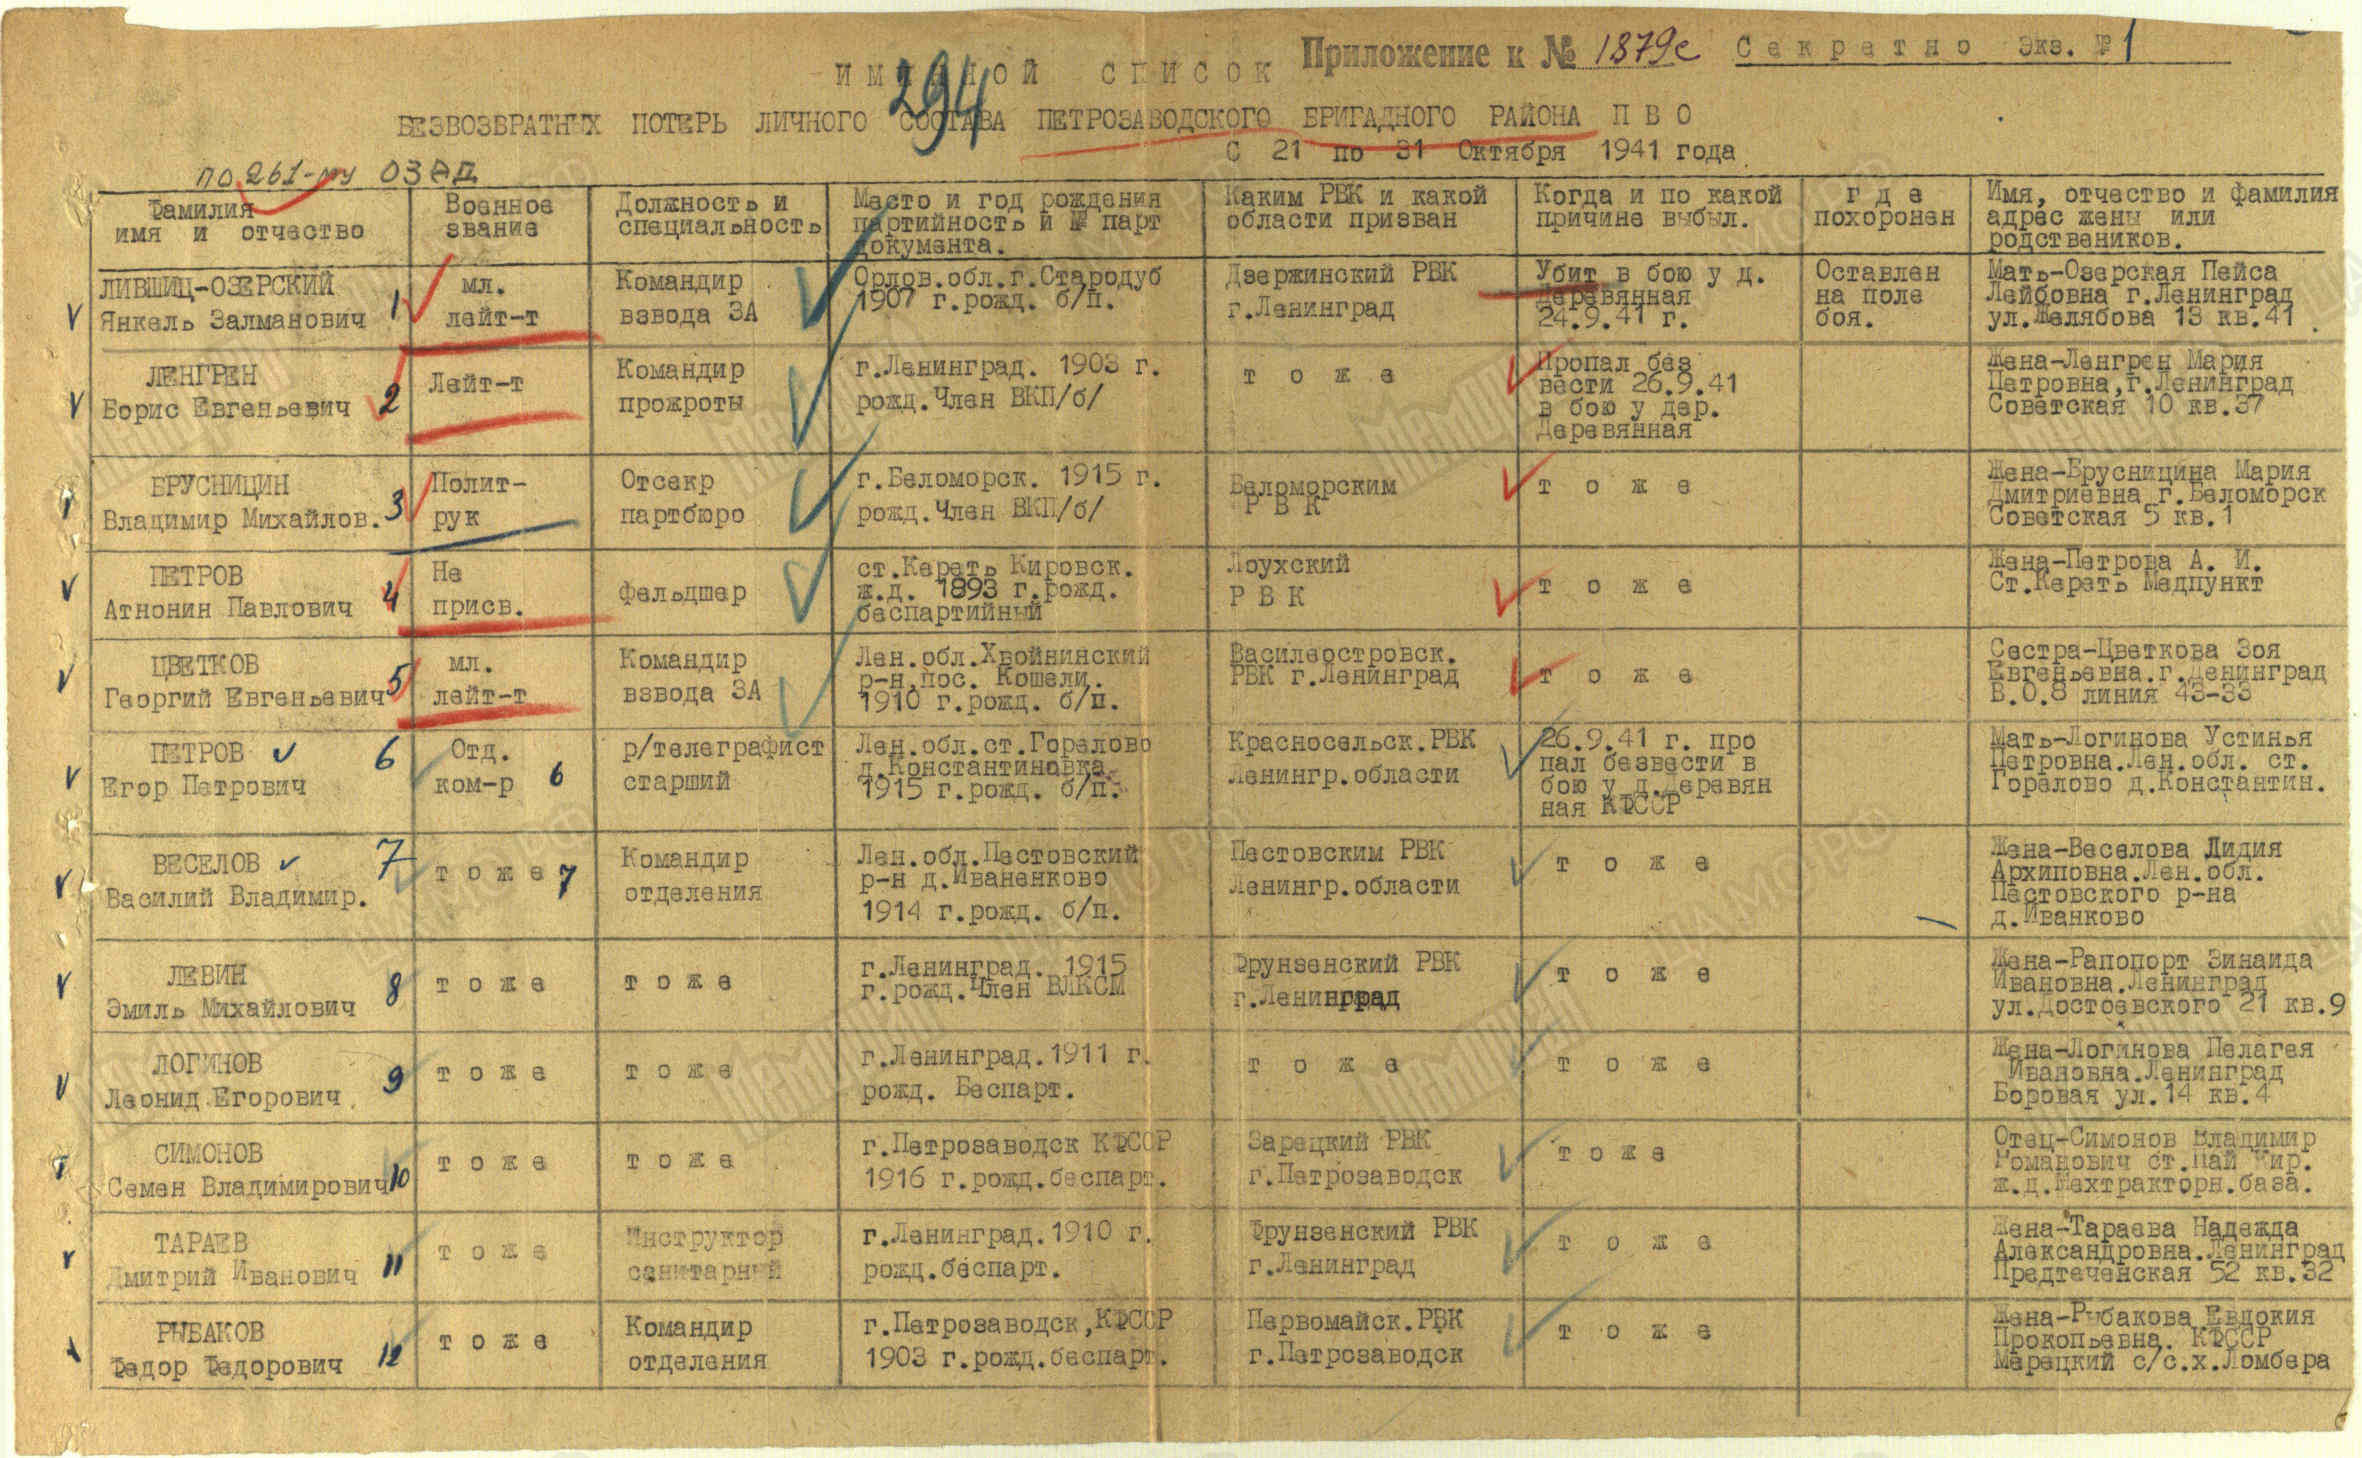 Приложение к № 1879с Секретно экз. № 1
ИМЕННОЙ СПИСОК
294
БЕЗВОЗВРАТНЫХ ПОТЕРЬ ЛИЧНОГО СОСТАВА ПЕТРОЗАВОДСКОГО БРИГАДНОГО РАЙОНА ПВО
С 21 по 31 Октября 1941 года
по 261-му ОЗАД
Фамилия
имя и отчество
Военное
звание
Должность и
специальность
Место и год рождения
партийность и № парт
документа.
Каким РВК и какой
области призван
Когда и по какой
причине выбыл.
где
похоронен
Имя, отчество и фамилия
адрес жены или
родствеников.
ЛИВШИЦ-ОЗЕРСКИЙ
Янкель Залманович
1
мл.
лейт-т
Командир
взвода ЗА
Орлов.обл.г.Стародуб
1907 г.рожд. б/п.
Дзержинский РВК
г.Ленинград
Убит в бою у д.
Деревянная
24.9.41 г.
Оставлен
на поле
боя.
Мать-Озерская Пейса
Лейбовна г.Ленинград
ул.Желябова 13 кв.41
ЛЕНГРЕН
Борис Евгеньевич
2
Лейт-т
Командир
прожроты
г.Ленинград. 1903 г.
рожд.Член ВКП/б/
тоже
Пропал без
вести 26.9.41
в бою у дер.
Деревянная
Жена-Ленгрен Мария
Петровна,г.Ленинград
Советская 10 кв.37
БРУСНИЦИН
Владимир Михайлов.
3
Полит-
рук
Отсекр
партбюро
г.Беломорск. 1915 г.
рожд.Член ВКП/б/
Беломорским
РВК
тоже
Жена-Брусницина Мария
Дмитриевна г.Беломорск
Советская 5 кв.1
ПЕТРОВ
Атнонин Павлович
4
Не
присв.
фельдшер
ст.Кереть Кировск.
ж.д. 1893 г.рожд.
беспартийный
Лоухский
РВК
тоже
Жена-Петрова А. И.
Ст.Кереть Медпункт
ЦВЕТКОВ
Георгий Евгеньевич
5
мл.
лейт-т
Командир
взвода ЗА
Лен.обл.Хвойнинский
р-н,пос. Кошели,
1910 г.рожд. б/п.
Василеостровск.
РВК г.Ленинград
тоже
Сестра-Цветкова Зоя
Евгеньевна.г.Ленинград
В.О.8 линия 43-33
ПЕТРОВ
Егор Петрович
6
Отд.
ком-р 6
р/телеграфист
старший
Лен.обл.ст.Горелово
д.Константиновка
1915 г.рожд. б/п.
Красносельск.РВК
Ленингр.области
26.9.41 г. про
пал безвести в
бою у д.Деревян
ная КФССР
Мать-Логинова Устинья
Петровна.Лен.обл. ст.
Горелово д.Константин.
ВЕСЕЛОВ
Василий Владимир.
7
тоже 7
Командир
отделения
Лен.обл.Пестовский
р-н д.Иваненково
1914 г.рожд. б/п.
Пестовским РВК
Ленингр.области
тоже
Жена-Веселова Лидия
Архиповна.Лен.обл.
Пестовского р-на
д.Иванково
ЛЕВИН
Эмиль Михайлович
8
тоже
тоже
г.Ленинград. 1915
г.рожд.Член ВЛКСМ
Фрунзенский РВК
г.Ленинград
тоже
Жена-Рапопорт Зинаида
Ивановна.Ленинград
ул.Достоевского 21 кв.9
ЛОГИНОВ
Леонид Егорович
9
тоже
тоже
г.Ленинград.1911 г.
рожд. Беспарт.
тоже
тоже
Жена-Логинова Пелагея
Ивановна.Ленинград
Боровая ул.14 кв.4
СИМОНОВ
Семен Владимирович
10
тоже
тоже
г.Петрозаводск КФССР
1916 г.рожд.беспарт.
Зарецкий РВК
г.Петрозаводск
тоже
Отец-Симонов Владимир
Романович ст.Пай Кир.
ж.д.Мехтракторн.база.
ТАРАЕВ
Дмитрий Иванович
11
тоже
Инструктор
санитарный
г.Ленинград.1910 г.
рожд.беспарт.
Фрунзенский РВК
г.Ленинград
тоже
Жена-Тараева Надежда
Александровна.Ленинград
Предтеченская 52 кв.32
РЫБАКОВ
Федор Федорович
12
тоже
Командир
отделения
г.Петрозаводск,КФССР
1903 г.рожд.беспарт.
Первомайск.РВК
г.Петрозаводск
тоже
Жена-Рыбакова Евдокия
Прокопьевна. КФССР
Мерецкий с/с.х.Ломбера